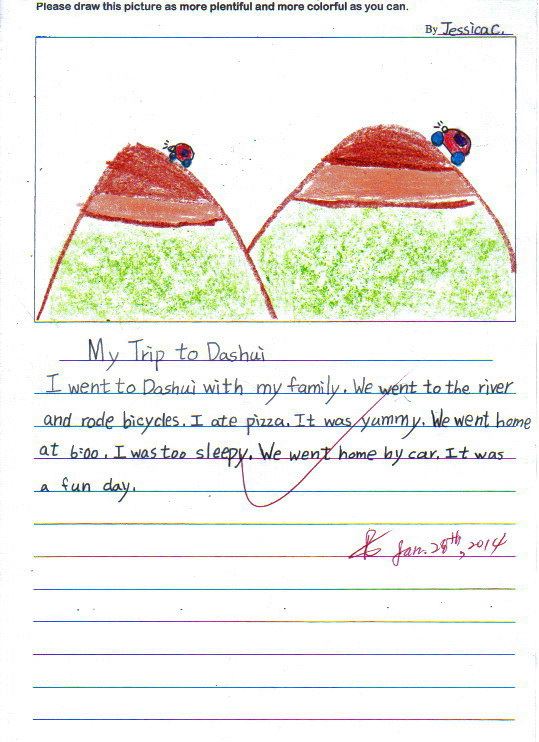 Please draw this picture as more plentiful and more colorful as you can.
By Jessica C.
My Trip to Dashui
I went to Dashui with my family. We went to the river
and rode bicycles. I ate pizza. It was yummy. We went home
at 6:00. I was too sleepy. We went home by car. It was
a fun day.
Jan. 28th, 2014